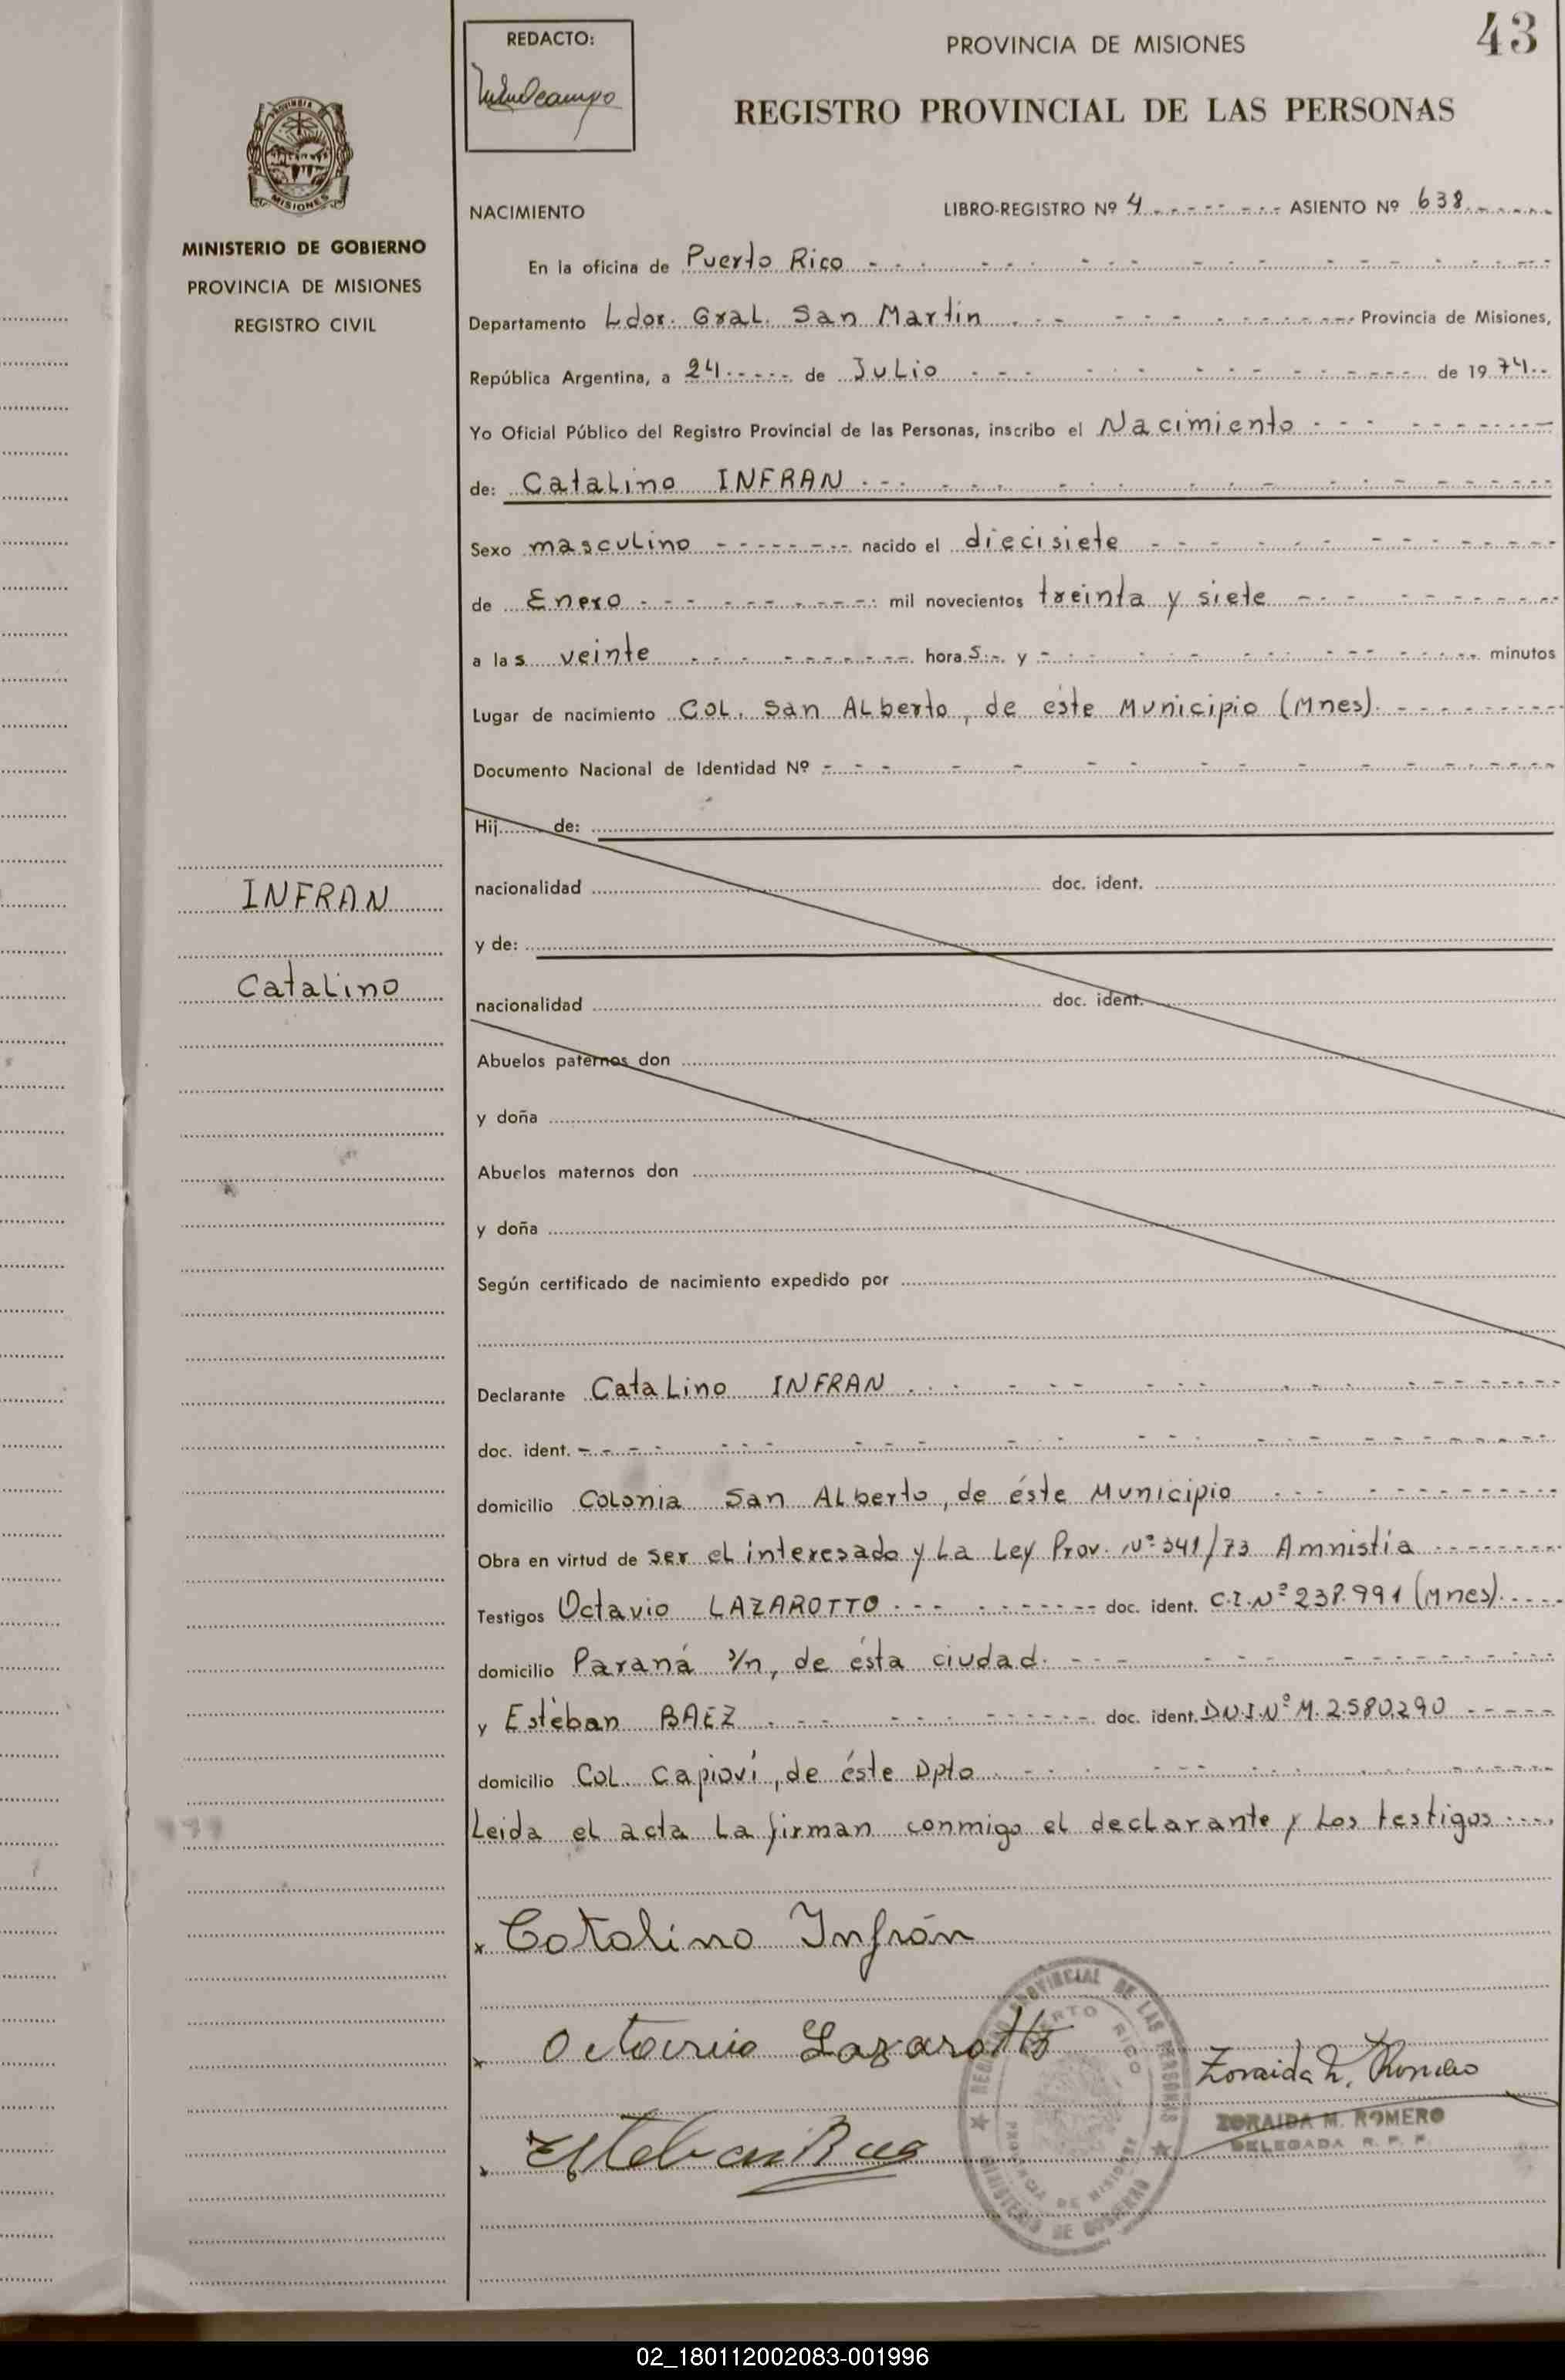 43
REDACTO:
PROVINCIA DE MISIONES
REGISTRO PROVINCIAL DE LAS PERSONAS
MISIONES
MINISTERIO DE GOBIERNO
PROVINCIA DE MISIONES
REGISTRO CIVIL
INFRAN
Catalino
NACIMIENTO LIBRO-REGISTRO Nº 4 ASIENTO Nº 638
En la oficina de Puerto Rico
Departamento Ldor. Gral. San Martin Provincia de Misiones,
República Argentina, a 24 de Julio de 1974
Yo Oficial Público del Registro Provincial de las Personas, inscribo el Nacimiento
de: Catalino INFRAN
Sexo masculino nacido el diecisiete
de Enero mil novecientos treinta y siete
a las veinte horas y - minutos
Lugar de nacimiento Col. San Alberto, de éste Municipio (Mnes).
Documento Nacional de Identidad Nº
Hij de:
nacionalidad doc. ident.
y de:
nacionalidad doc. ident.
Abuelos paternos don
y doña
Abuelos maternos don
y doña
Según certificado de nacimiento expedido por
Declarante Catalino INFRAN
doc. ident.
domicilio Colonia San Alberto, de éste Municipio
Obra en virtud de ser el interesado y La Ley Prov. Nº 341/73 Amnistia
Testigos Octavio LAZAROTTO doc. ident. C.I.Nº 238.991 (Mnes).
domicilio Paraná s/n, de ésta ciudad.
y Estéban BAEZ doc. ident. D.N.I.Nº M. 2.580.290
domicilio Col. Capioví, de éste Dpto
Leida el acta La firman conmigo el declarante y Los testigos
x Catalino Infrán
x Octavio Lazarotto
Zoraida M. Romero
ZORAIDA M. ROMERO
DELEGADA R. P. P.
x Esteban Baez
REGISTRO PROVINCIAL DE LAS PERSONAS
PUERTO RICO
PROVINCIA DE MISIONES
MINISTERIO DE GOBIERNO
02_180112002083-001996